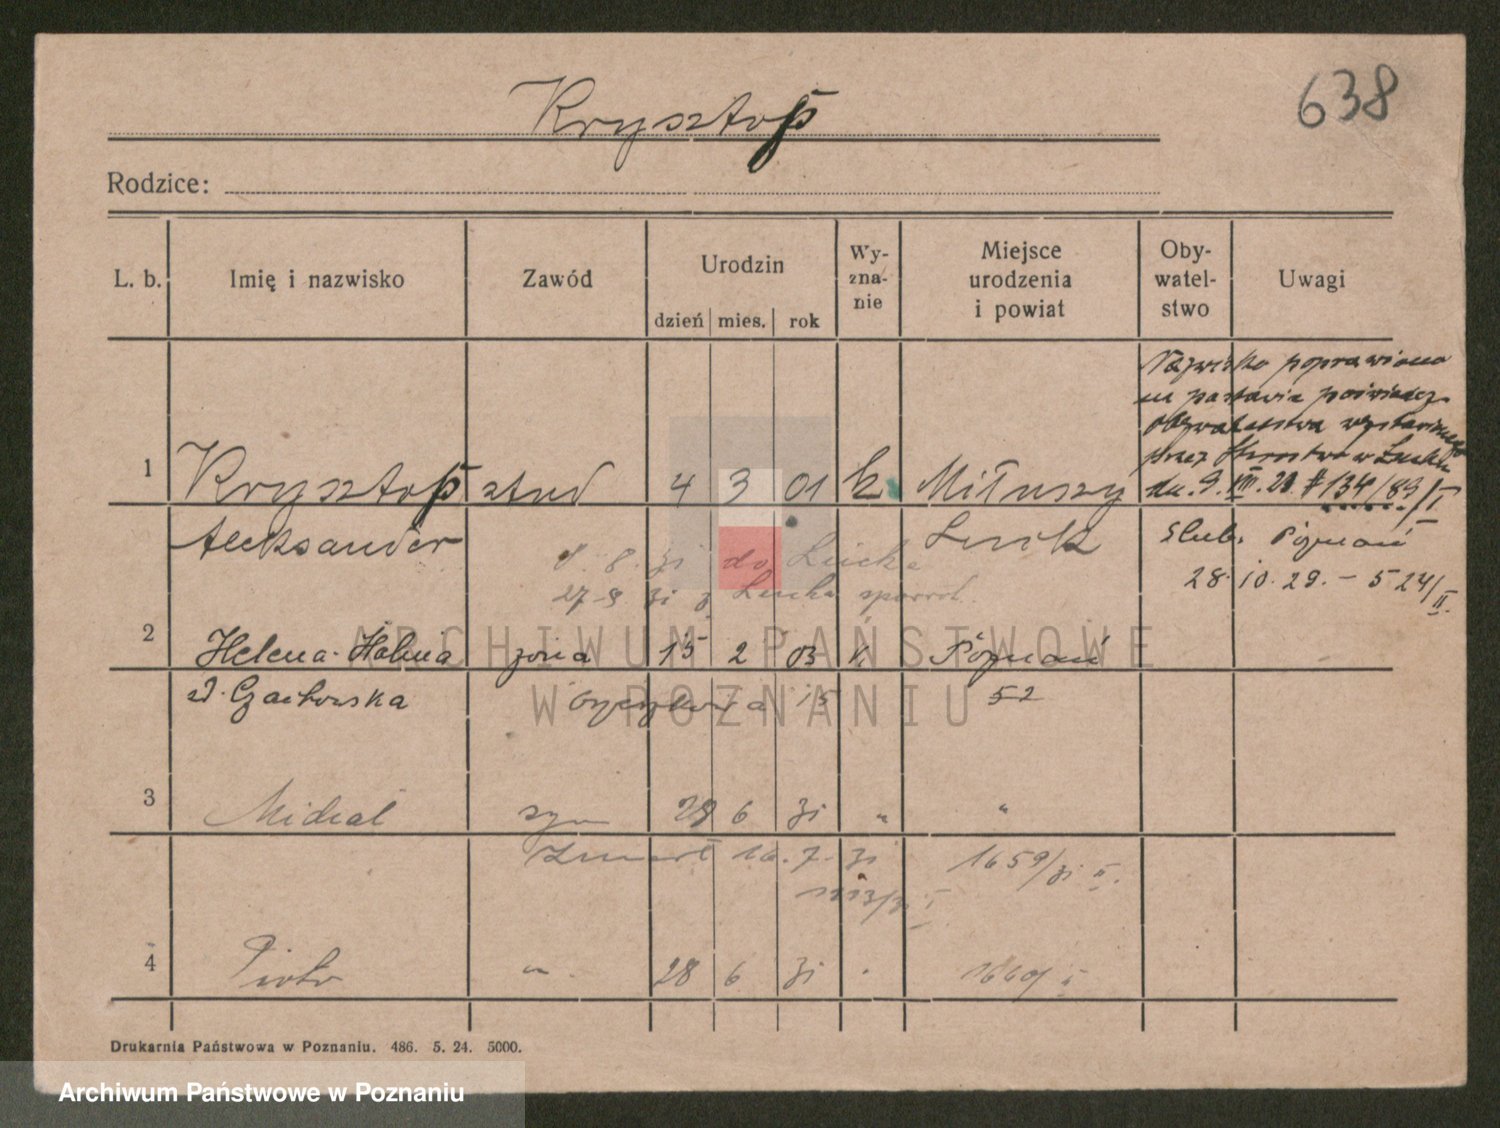 638
Krysztof
Rodzice:
L. b.
Imię i nazwisko
Zawód
Urodzin
dzień
mies.
rok
Wy-
zna-
nie
Miejsce
urodzenia
i powiat
Oby-
watel-
stwo
Uwagi
Nazwisko poprawiono
na postawie poświadcz.
obywatelstwa wystawionego
przez Starostwo w Łucku
dn. 9. VIII. 29. # 134/83/I
1
Krysztof
stud
4
3
01
k
Miłuszy
Aleksander
Łuck
Ślub. Poznań
28. 10. 29. – 524/II.
8. 31 do Łucka
27 9 31 z Łucka
2
Helena-Halina
żona
15
2
03
k
Poznań
z d. Czachowska
15
52
3
Michał
syn
28
6
31
"
"
Zmarł 16. 7. 31
1659/31 II.
4
Piotr
"
28
6
31
1660 II
Drukarnia Państwowa w Poznaniu. 486. 5. 24. 5000.
ARCHIWUM PAŃSTWOWE
W POZNANIU
Archiwum Państwowe w Poznaniu